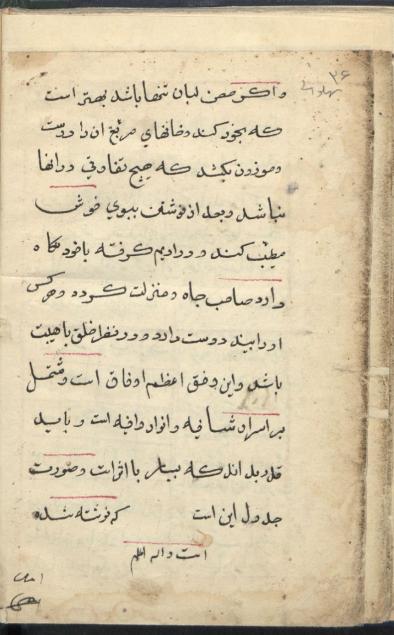 ۳۶
واکر محض لبان تنها باشد بهتر است
که بخود کند و خانهای مربع ان را درست
و موزون بکشد که هیچ تفاوتی در انها
نباشد و بعد از نوشتن ببوی خوش
مطیب کند و در ادیم کرفته با خود نکاه
دارد صاحب جاه و منزلت کردد و هرکس
او را بیند دوست دارد و در نظر خلق با هیبت
باشد و این وفق اعظم اوفاق است و مشتمل
بر اسرار شافیه و انوار وافیه است و باید
قدر بداند که بسیار با اثرات و صورت
جدول این است که نوشته شده
است والله اعلم